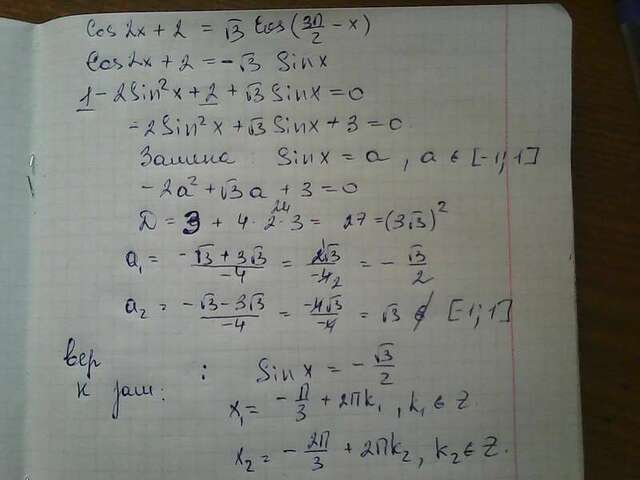 Cos 2x + 2 = √3 Cos(3π/2 - x)
Cos 2x + 2 = -√3 Sin x
1 - 2Sin²x + 2 + √3 Sin x = 0
-2Sin²x + √3 Sin x + 3 = 0
Замена: Sin x = a, a ∈ [-1; 1]
-2a² + √3a + 3 = 0
D = 3 + 4·2·3 = 27 = (3√3)²
a₁ = (-√3 + 3√3)/-4 = 2√3/-4 = -√3/2
a₂ = (-√3 - 3√3)/-4 = -4√3/-4 = √3 ∉ [-1; 1]
вер
к зам: : Sin x = -√3/2
x₁ = -π/3 + 2πk₁, k₁ ∈ Z.
x₂ = -2π/3 + 2πk₂, k₂ ∈ Z.